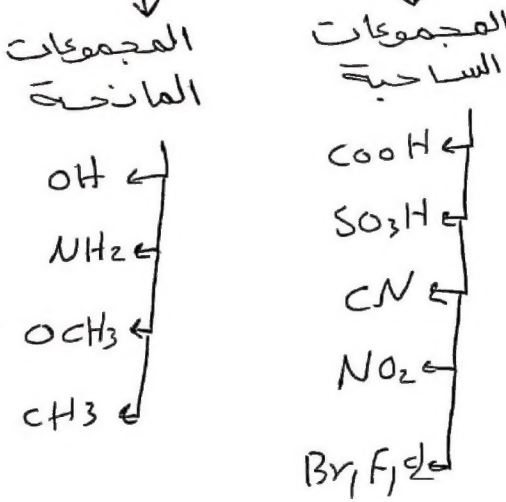 المجموعات
الساحبة
COOH
SO3H
CN
NO2
Br, F, Cl
المجموعات
المانحة
OH
NH2
OCH3
CH3